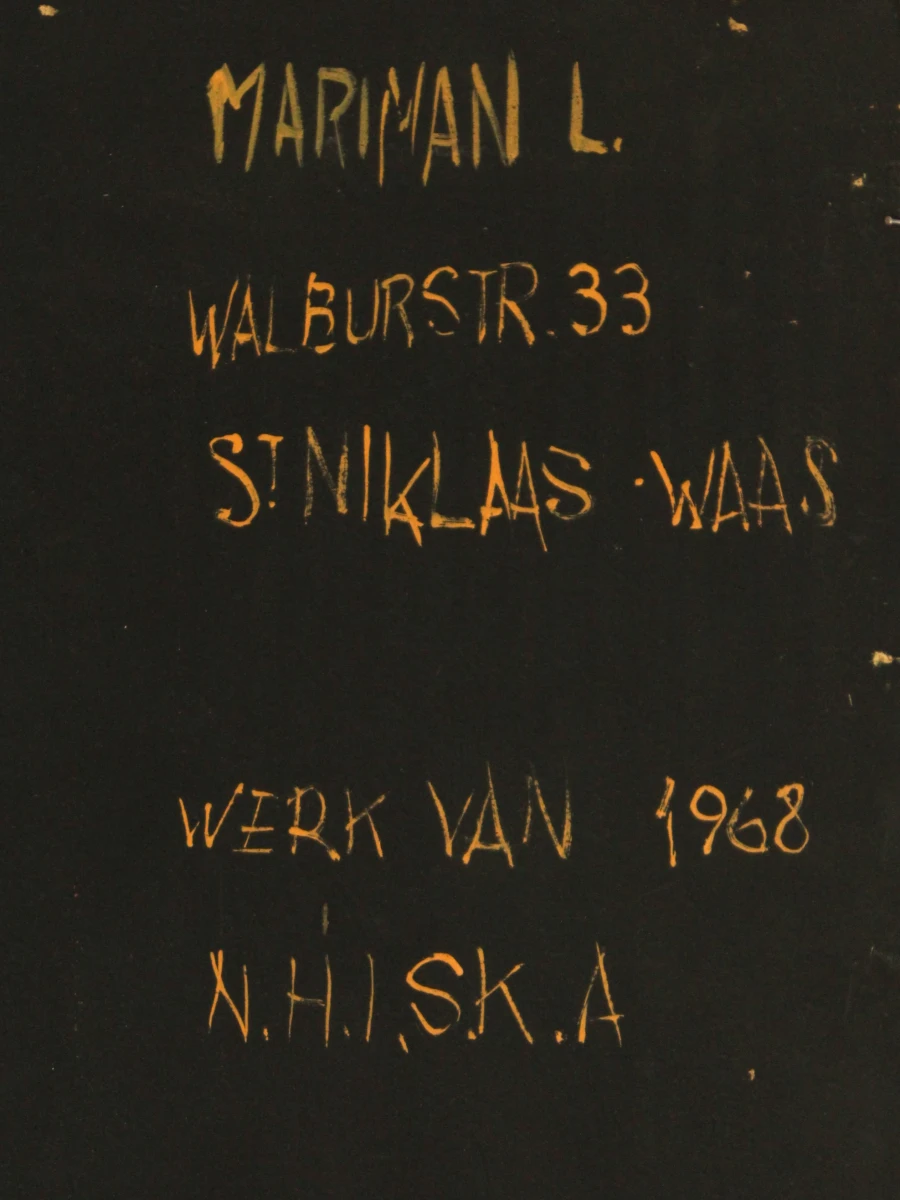 MARIMAN L.
WALBURSTR. 33
ST NIKLAAS · WAAS
WERK VAN 1968
N.H.I.S.K.A